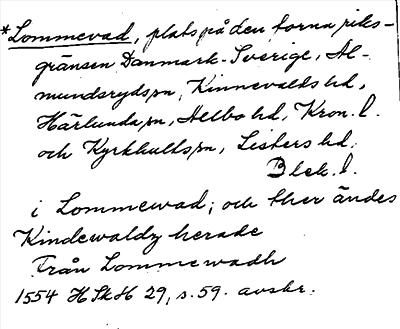 *Lommevad, plats på den forna riks-
gränsen Danmark-Sverige, Al-
mundsryds sn, Kinnevalds hd,
Härlunda sn, Allbo hd, Kron. l.
och Kyrkhults sn, Listers hd,
Blek. l.
i Lommewad; och ther ändes
Kindewaldz herade
Från Lommewadh
1554 HSkH 29, s. 59. avskr.